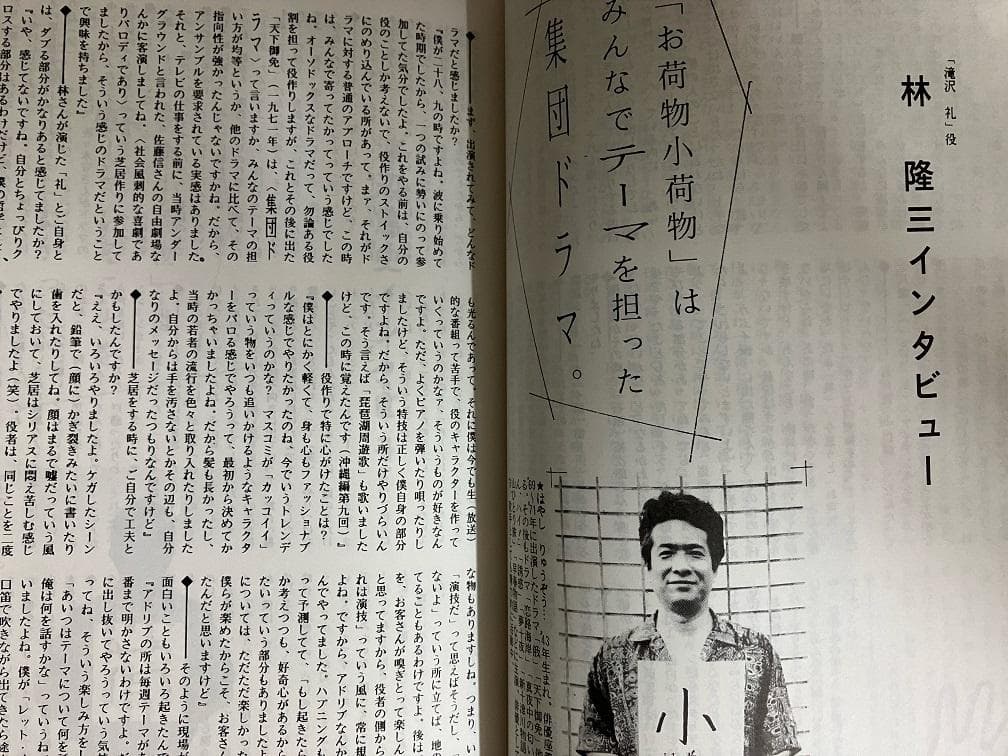 「滝沢 礼」役
林 隆三インタビュー
「お荷物小荷物」は
みんなでテーマを担った
集団ドラマ。
小
◆――まず、出演されてみて、どんなド
ラマだと感じましたか？
『僕が二十八、九の時ですよね。波に乗り始めて
た時期でしたから、一つの試みに勢いにのって参
加してた気分でしたよ。これをやる前は、自分の
役のことしか考えないで、役作りのストイックさ
にのめり込んでいる所があって。まァ、それがド
ラマに対する普通のアプローチですけど、この時
は、みんなで寄ってたかってっていう感じでした
ね。オーソドックスなドラマだって、勿論ある役
割を担って役作りしますが、これとその後に出た
「天下御免」（一九七一年）は、〈集団ド
ラマ〉って言いますか、みんなのテーマの担
い方が均等というか、他のドラマに比べて、その
指向性が強かったんじゃないですかね。だから、
アンサンブルを要求されている実感はありました。
それと、テレビの仕事をする前に、当時アンダー
グラウンドと言われた、佐藤信さんの自由劇場な
んかに客演しましてね、（社会風刺的な喜劇であ
りパロディであり）っていう芝居作りに参加して
ましたから、そういう感じのドラマだということ
で興味を持ちました』
◆――林さんが演じた「礼」とご自身と
は、ダブる部分がかなりあると感じてましたか？
『いや、感じてないですね。自分とちょっぴりク
ロスする部分はあるわけだけど、
も光るんであって。それに僕は今でも生（放送）
的な番組って苦手で、役のキャラクターを作って
いくっていうのかなァ、そういうものが好きなん
ですよ。ただ、よくピアノを弾いたり唄ったりし
ましたけど、そういう特技は正しく僕自身の部分
ですよね。だから、そういう所だけやりづらいん
です。そう言えば「琵琶湖周遊歌」も歌いました
けど、この時に覚えたんです（沖縄編第九回）』
◆――役作りで特に心がけたことは？
『僕はとにかく軽くて、身も心もファッショナブ
ルな感じでやりたかったのね、今でいうトレンデ
ィっていうのかな？ マスコミが「カッコイイ」
っていう物をいつも追いかけるようなキャラクタ
ーをパロる感じでやろうって、最初から決めてか
かっちゃいましたよね。だから髪も長かったし、
当時の若者の流行を色々と取り入れたりしました
よ。自分からは手を汚さないとかその辺も、自分
なりのメッセージだったつもりなんですけど』
◆――芝居をする時に、ご自分で工夫と
かもしたんですか？
『ええ、いろいろやりましたよ。ケガしたシーン
だと、鉛筆で（顔に）かぎ裂きみたいに書いたり
歯を入れたりしてね。顔はまるで嘘だっていう風
にしておいて、芝居はシリアスに悶え苦しむ感じ
でやりましたよ（笑）。役者は、同じことを二度
な物もありますしね。つまり、い
「演技だ」って思えばそうだし、
ないよ」っていう所に立てば、地
てることもあるわけですよ。後は
を、お客さんが嗅ぎとって楽しん
と思ってますから、役者の側から
れは演技、っていう風に、常に規
よね。ですから、アドリブなんか
んでやってました。ハプニングも
って予測してて、「もし起きたら
か考えつつも、好奇心があるから
たいっていう部分もありましたし
については、ただただ楽しかった
僕らが楽めたからこそ、お客さん
たんだと思いますけど』
◆――そのように現場が
面白いこともいろいろ起きたんで
『アドリブの所は毎週テーマがあ
番まで明かさないわけですよ。だ
に出し抜いてやろうっていう気
ってね、そういう楽しみ方をし
「あいつはテーマについて何を
俺は何を話すかな」っていうね
いましたよね。僕が「レット・
口笛で吹きながら出てきたら